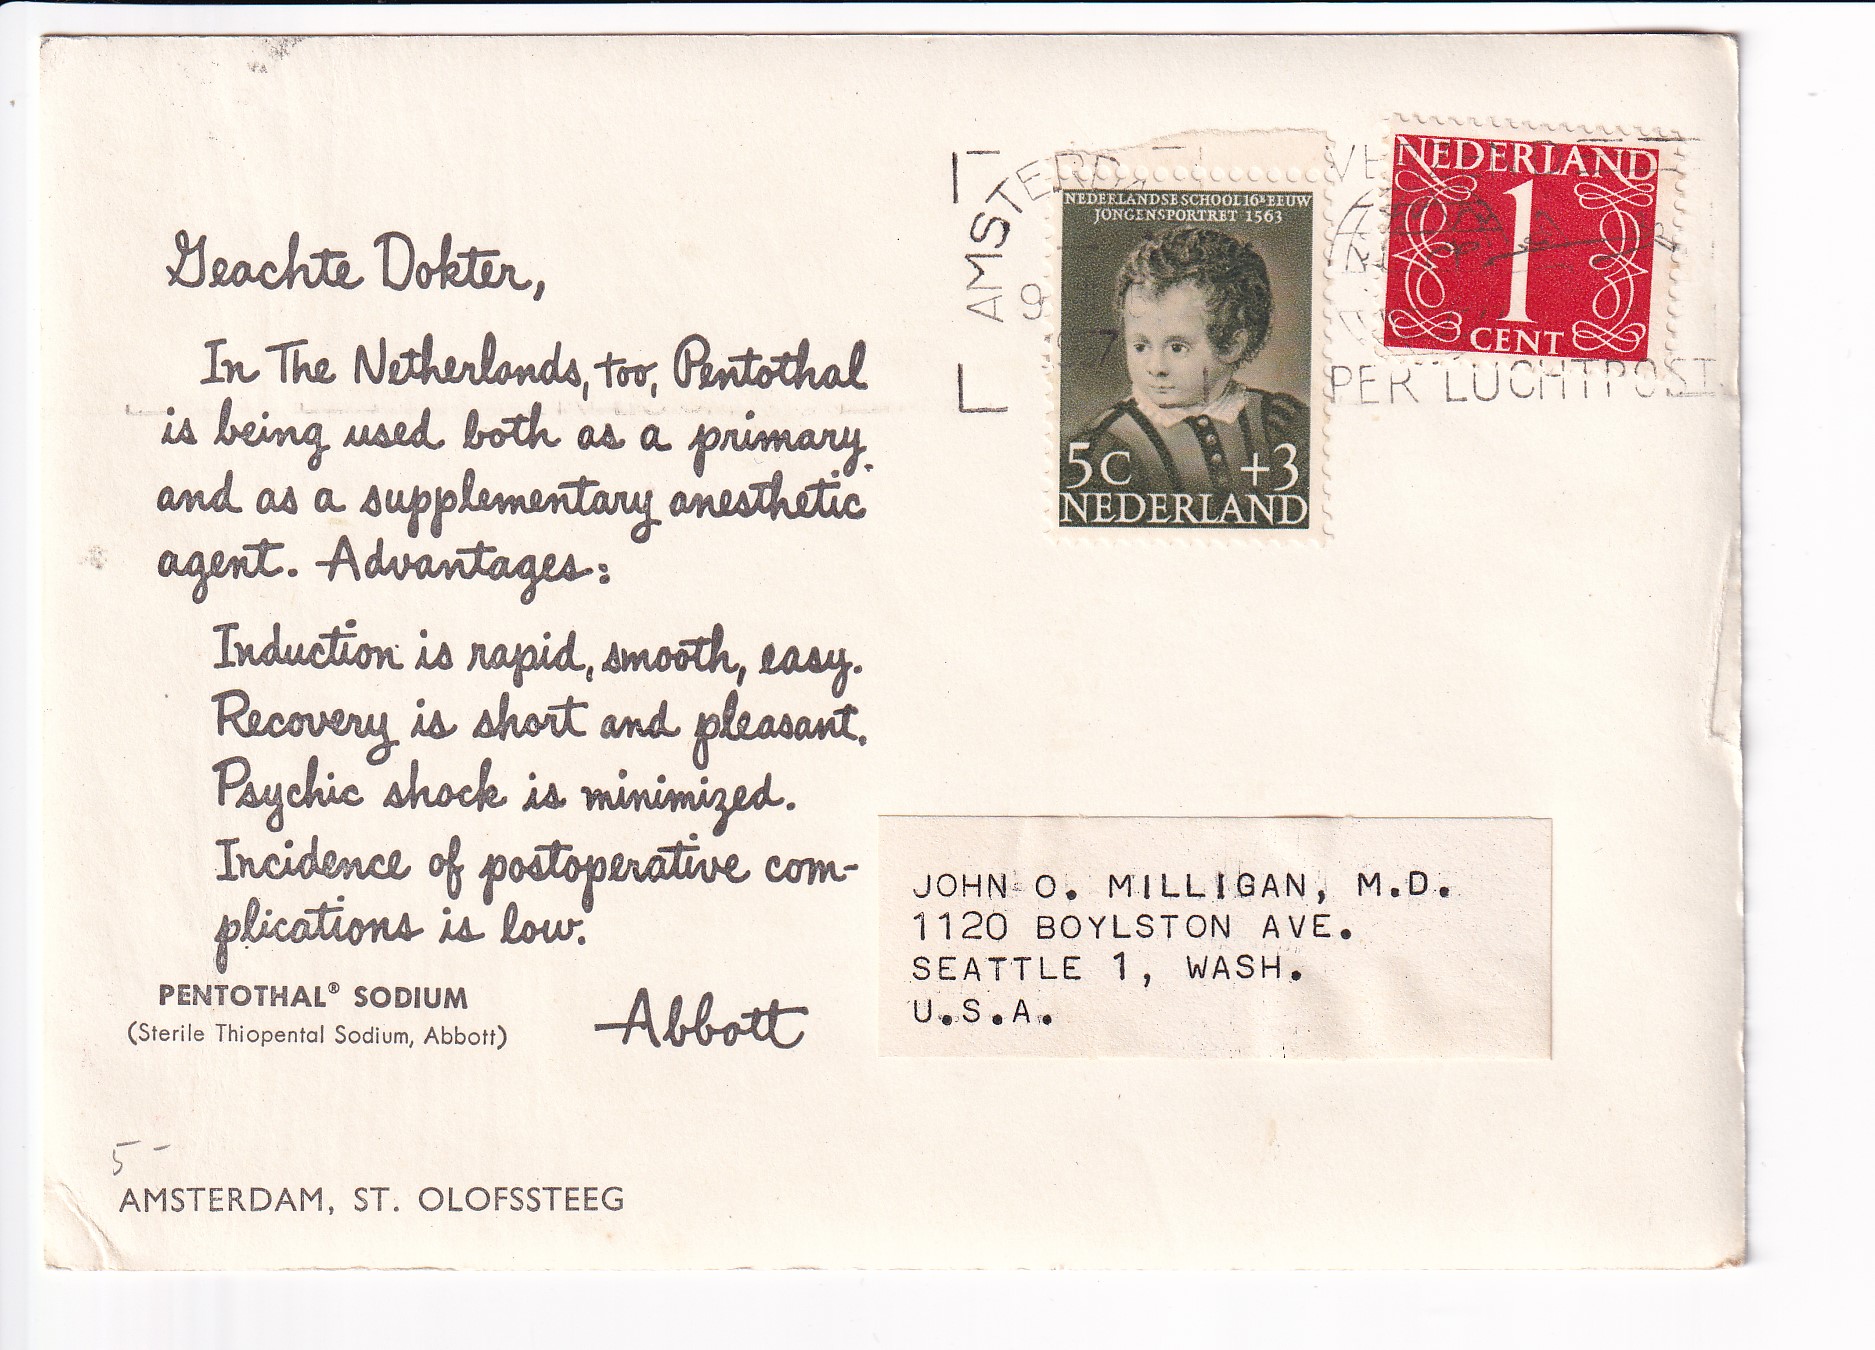 Geachte Dokter,
In The Netherlands, too, Pentothal
is being used both as a primary
and as a supplementary anesthetic
agent. Advantages:
Induction is rapid, smooth, easy.
Recovery is short and pleasant.
Psychic shock is minimized.
Incidence of postoperative com-
plications is low.
PENTOTHAL® SODIUM
(Sterile Thiopental Sodium, Abbott)
Abbott
5-
AMSTERDAM, ST. OLOFSSTEEG
AMSTERDA
9
PER LUCHTPOST
NEDERLANDSE SCHOOL 16E EEUW
JONGENSPORTRET 1563
5C +3
NEDERLAND
NEDERLAND
1
CENT
JOHN O. MILLIGAN, M.D.
1120 BOYLSTON AVE.
SEATTLE 1, WASH.
U.S.A.